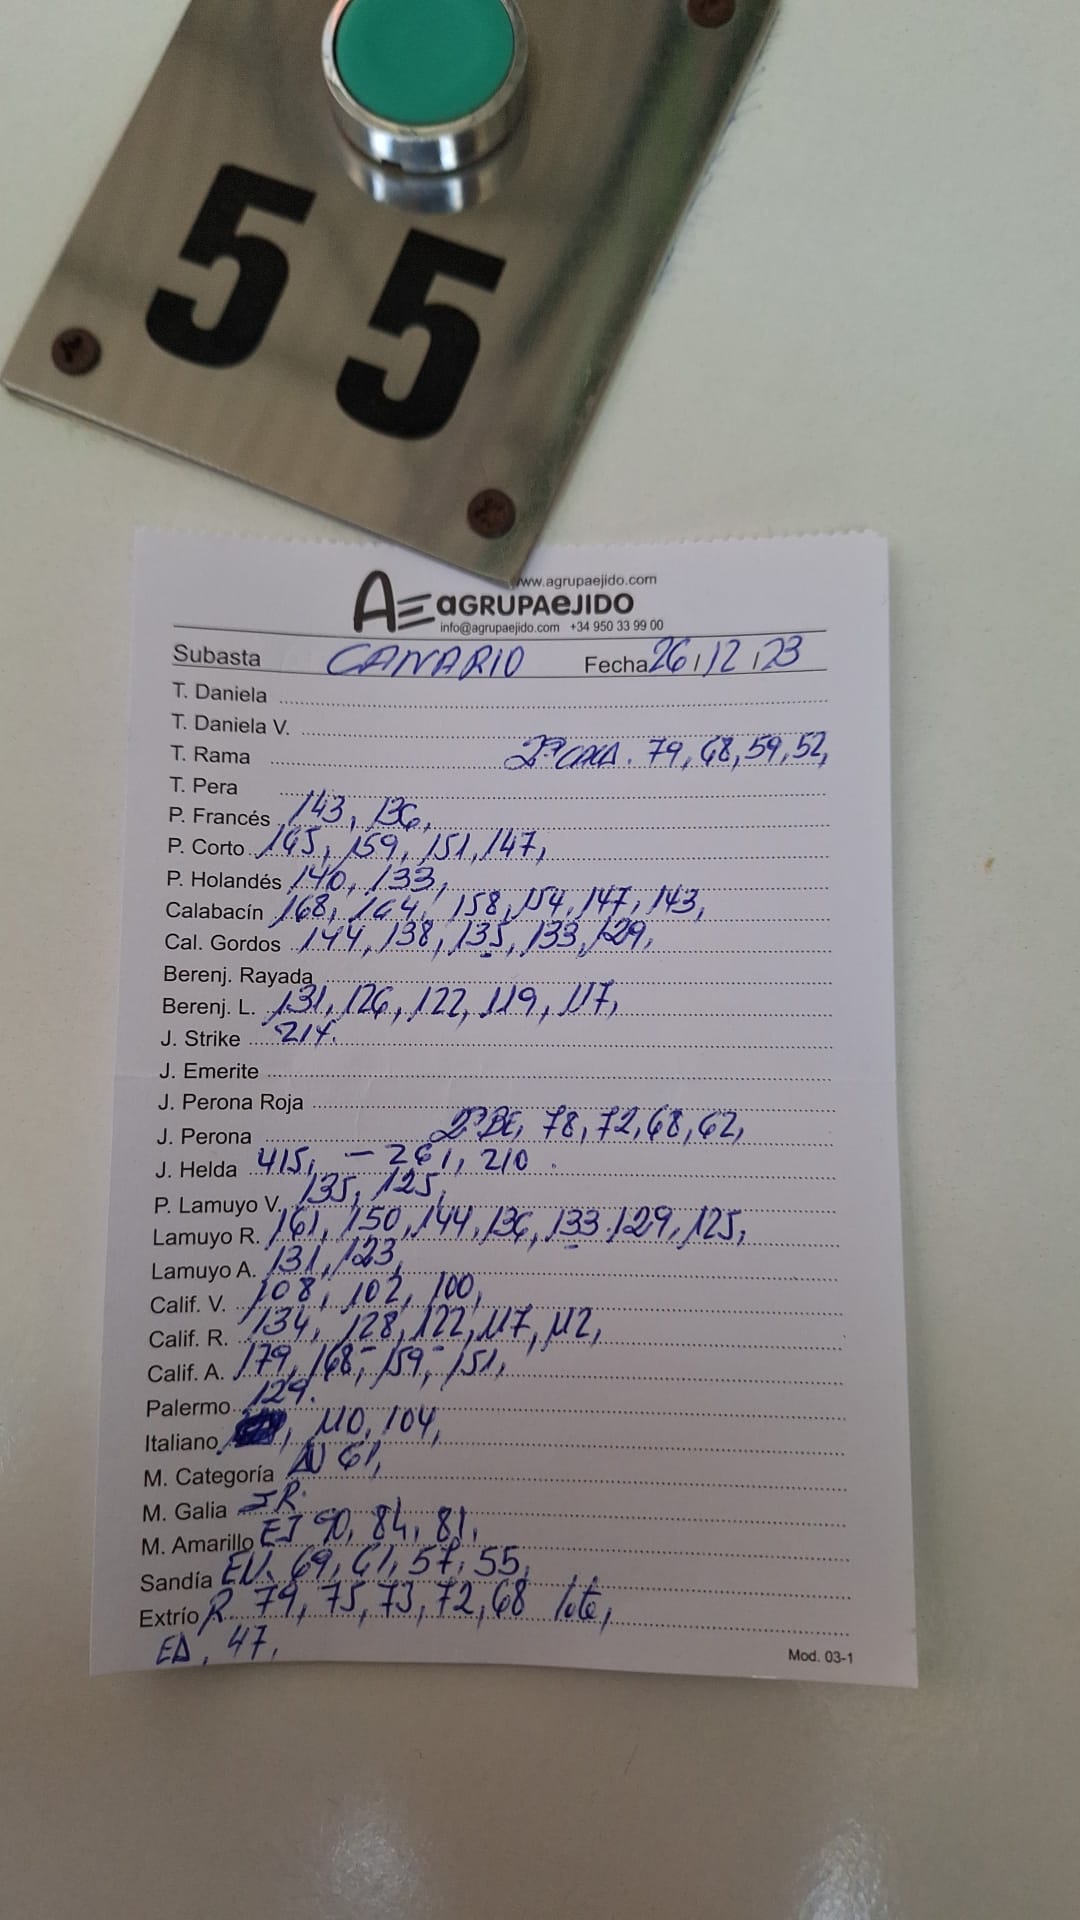 55
www.agrupaejido.com
AE aGRUPAeJIDO
info@agrupaejido.com +34 950 33 99 00
Subasta CANARIO Fecha 26/12/23
T. Daniela
T. Daniela V.
T. Rama 2ª CAXA. 79, 68, 59, 52,
T. Pera
P. Francés 143, 136,
P. Corto 165, 159, 151, 147,
P. Holandés 140, 133,
Calabacín 168, 164, 158, 154, 147, 143,
Cal. Gordos 144, 138, 135, 133, 129,
Berenj. Rayada
Berenj. L. 131, 126, 122, 119, 117,
J. Strike 214.
J. Emerite
J. Perona Roja
J. Perona 2ª BE, 78, 72, 68, 62,
J. Helda 415, - 261, 210.
P. Lamuyo V. 135, 125,
Lamuyo R. 161, 150, 144, 136, 133, 129, 125,
Lamuyo A. 131, 123,
Calif. V. 108, 102, 100,
Calif. R. 134, 128, 122, 117, 112,
Calif. A. 179, 168, 159, 151,
Palermo 129.
Italiano , 110, 104,
M. Categoría 61,
M. Galia
M. Amarillo EJ 90, 84, 81,
Sandía EN. 69, 61, 57, 55,
Extrío R. 79, 75, 73, 72, 68 lote,
EA, 47,
Mod. 03-1